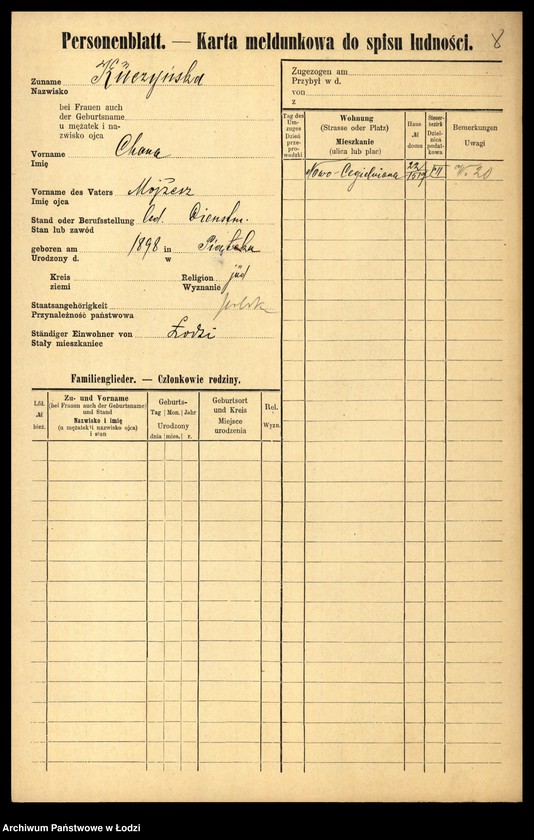 Personenblatt. — Karta meldunkowa do spisu ludności.
8
Zuname Kuczyńska
Nazwisko
bei Frauen auch
der Geburtsname
u mężatek i na-
zwisko ojca
Vorname Chana
Imię
Vorname des Vaters Mojżesz
Imię ojca
Stand oder Berufsstellung led. Dienstm.
Stan lub zawód
geboren am 1898 in Piątku
Urodzony d. w
Kreis
ziemi
Religion jüd
Wyznanie
Staatsangehörigkeit
Przynależność państwowa
Ständiger Einwohner von Łodzi
Stały mieszkaniec
Zugezogen am
Przybył w d.
von
z
Tag des Um-zuges Dzień prze-pro-wadzki
Wohnung
(Strasse oder Platz)
Mieszkanie
(ulica lub plac)
Haus № domu
Steuer-bezirk Dziel-nica podat-kowa
Bemerkungen
Uwagi
Nowo-Cegielniana 22/1517 VII W. 20
Familienglieder. — Członkowie rodziny.
Lfd. № bież.
Zu- und Vorname
(bei Frauen auch der Geburtsname)
und Stand
Nazwisko i imię
(u mężatek i nazwisko ojca)
i stan
Geburts-
Tag Mon. Jahr
Urodzony
dnia mies. r.
Geburtsort
und Kreis
Miejsce
urodzenia
Rel.
Wyzn.
Archiwum Państwowe w Łodzi